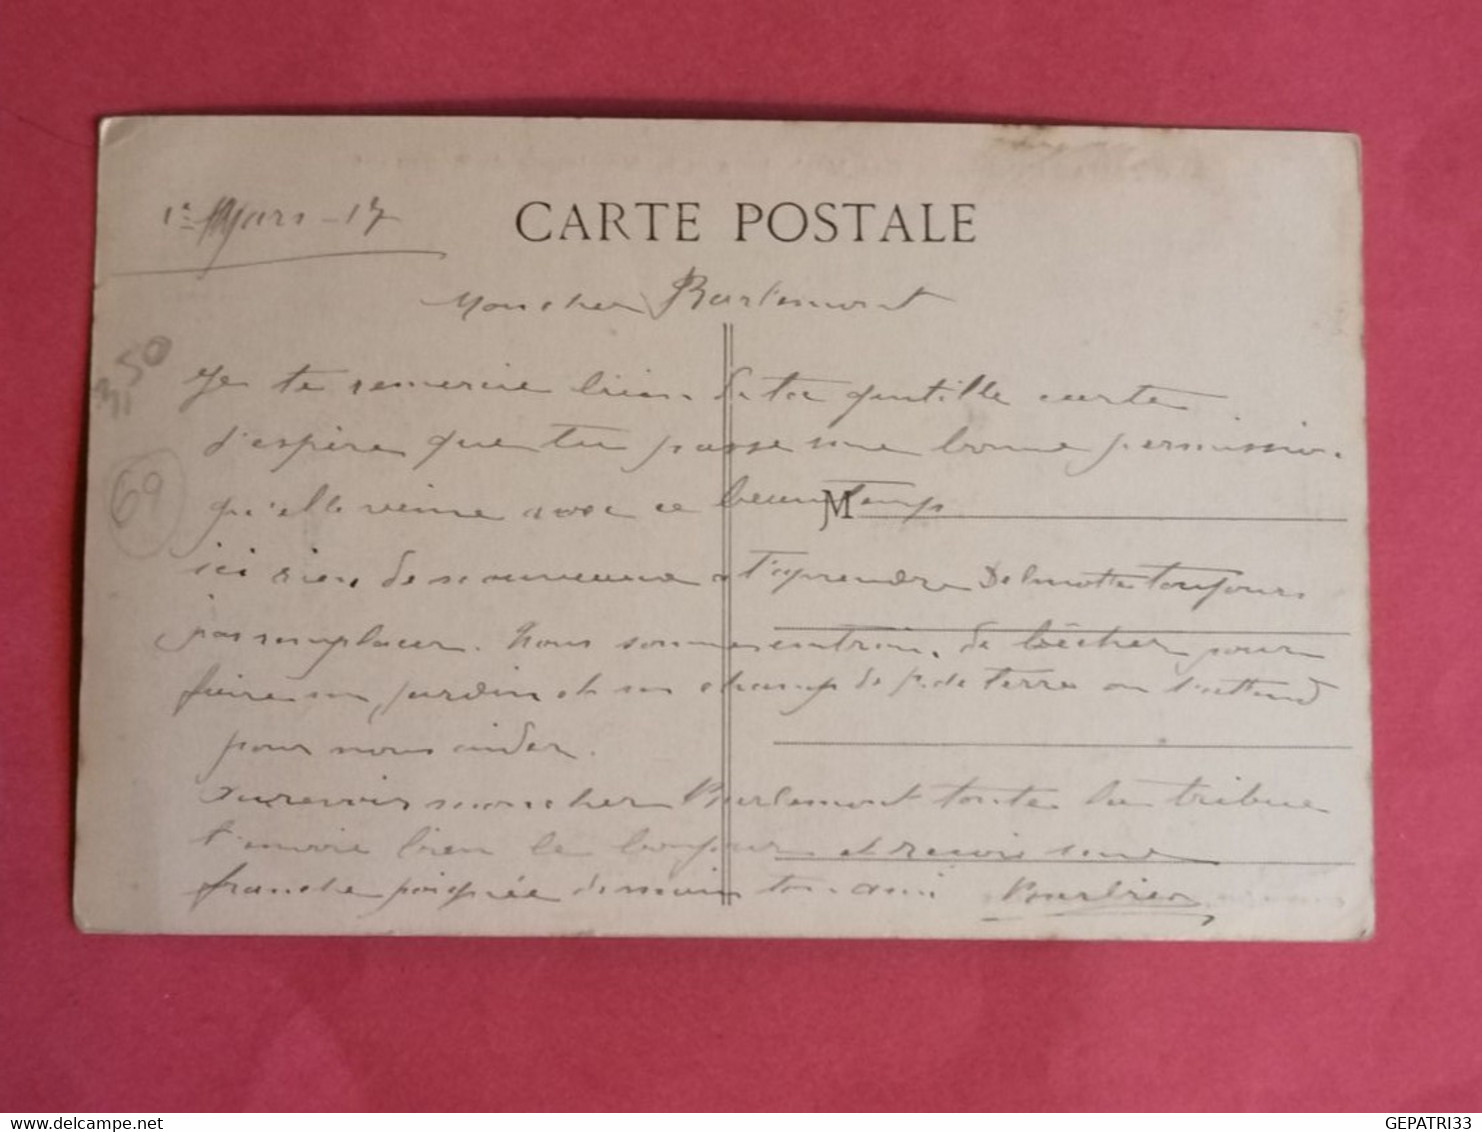 1er Mars - 17
CARTE POSTALE
Mon cher Barlemont
3,50
Je te remercie bien de ta gentille carte
j'espère que tu passe une bonne permission
69
qu'elle veine avec ce beau temps
M
ici rien de nouveau a t'aprendre Delmotte toujours
pas remplacer. Nous somme entrin de bêcher pour
faire un jardin et un champ de p. de terre on t'attend
pour nous aider.
Aurevoir mon cher Barlemont toute la tribue
t'envoie bien le bonjour et recois une
franche poignée de main ton ami
GEPATRI33